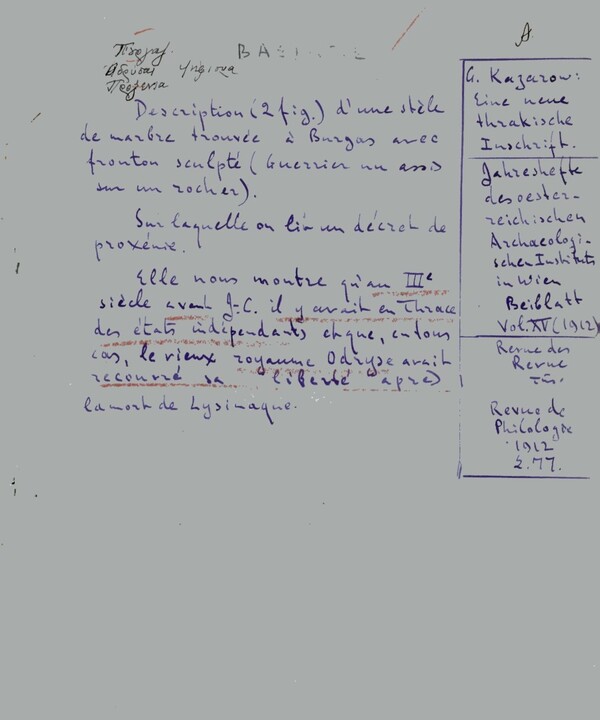 A.
ΒΑΣΙΛ
Description (2 fig.) d'une stèle
de marbre trouvée à Burgas avec
fronton sculpté (Guerrier nu assis
sur un rocher).
Sur laquelle on lit un décret de
proxénie.
Elle nous montre qu'au IIIe
siècle avant J-C. il y avait en Thrace
des états indépendants et que, en tous
cas, le vieux royaume Odryse avait
recouvré sa liberté après
la mort de Lysimaque.
G. Kazarow:
Eine neue
thrakische
Inschrift.
Jahreshefte
des oester-
reichischen
Archaeologi-
schen Instituts
in Wien
Beiblatt
Vol. XV (1912)
Revue des
Revue
Revue de
Philologie
1912
σ. 77.